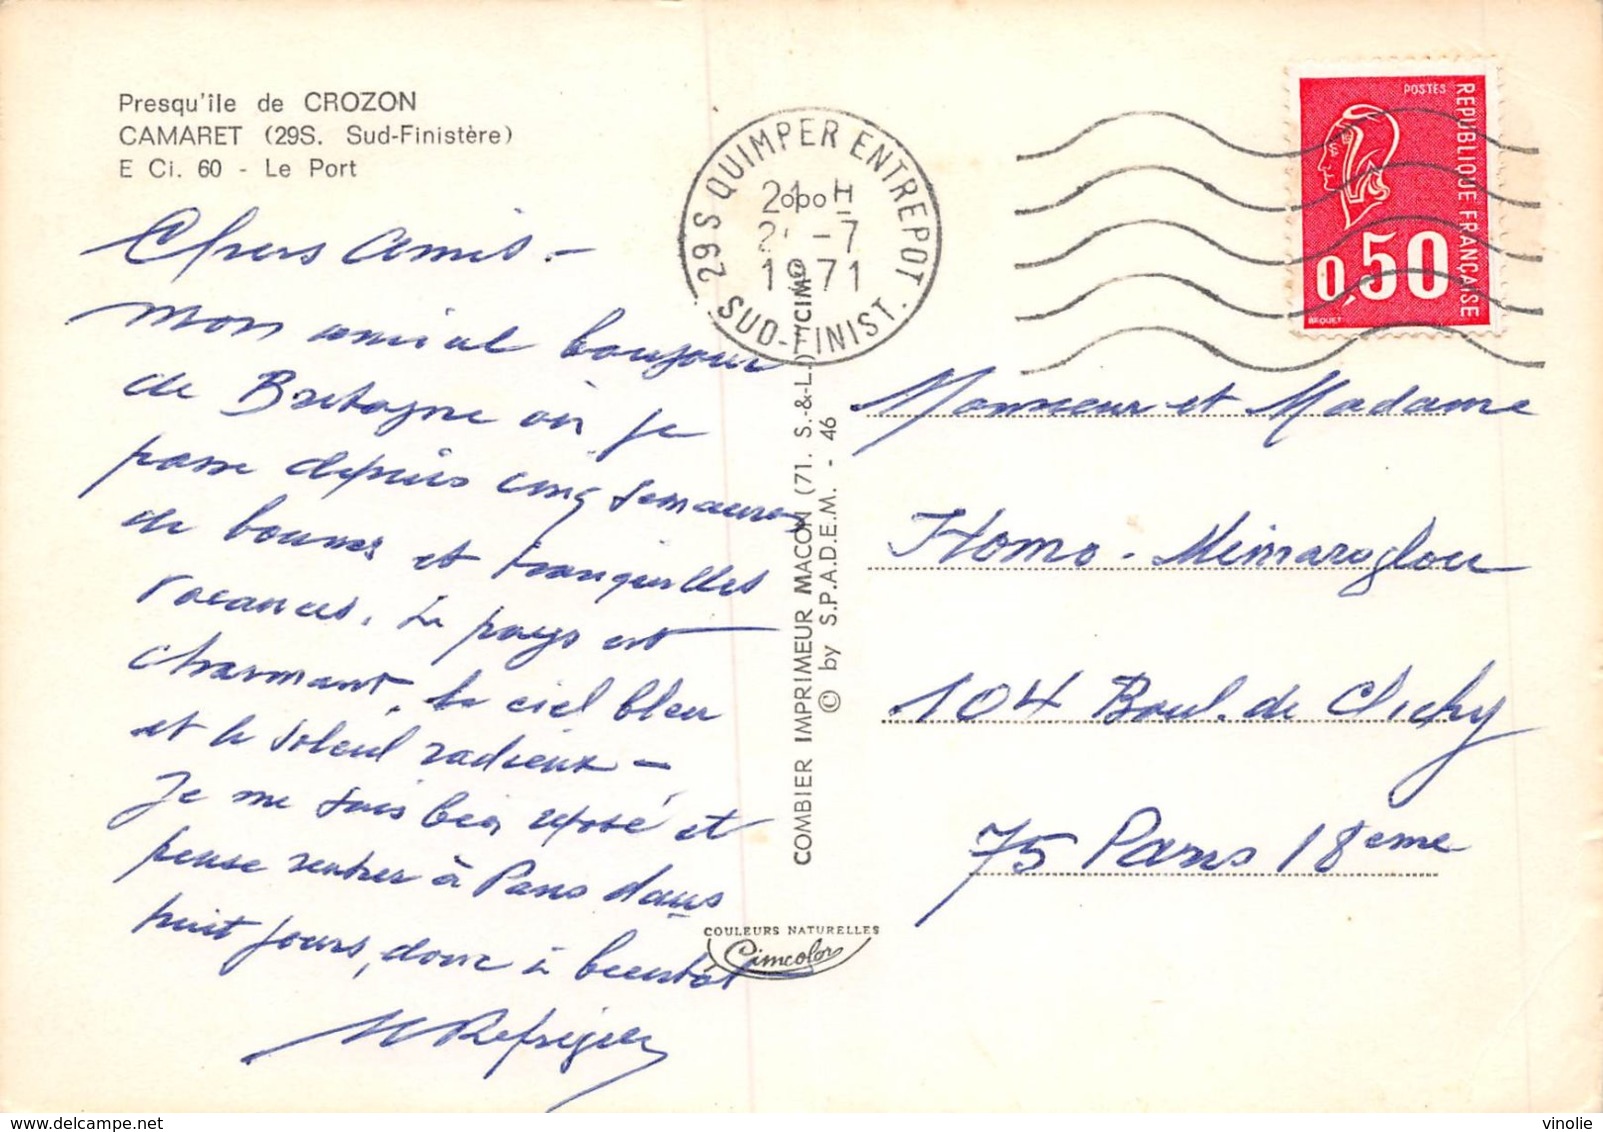 Presqu'île de CROZON
CAMARET (29S. Sud-Finistère)
E Ci. 60 - Le Port
Chers Amis -
Mon amical bonjour
de Bretagne où je
passe depuis cinq semaines
de bonnes et tranquilles
vacances. Le pays est
charmant, le ciel bleu
et le soleil radieux -
Je me suis bien reposé et
pense rentrer à Paris dans
huit jours, donc à bientôt
COMBIER IMPRIMEUR MACON (71. S.-&-L.) "CIM"
© by S.P.A.D.E.M. - 46
COULEURS NATURELLES
Cimcolor
29 S QUIMPER ENTREPOT.
SUD-FINIST.
21 H
-7
1971
POSTES
REPUBLIQUE FRANÇAISE
0,50
BEQUET
Monsieur et Madame
Homo-Mimaroglou
104 Boul. de Clichy
75 Paris 18eme
vinolie